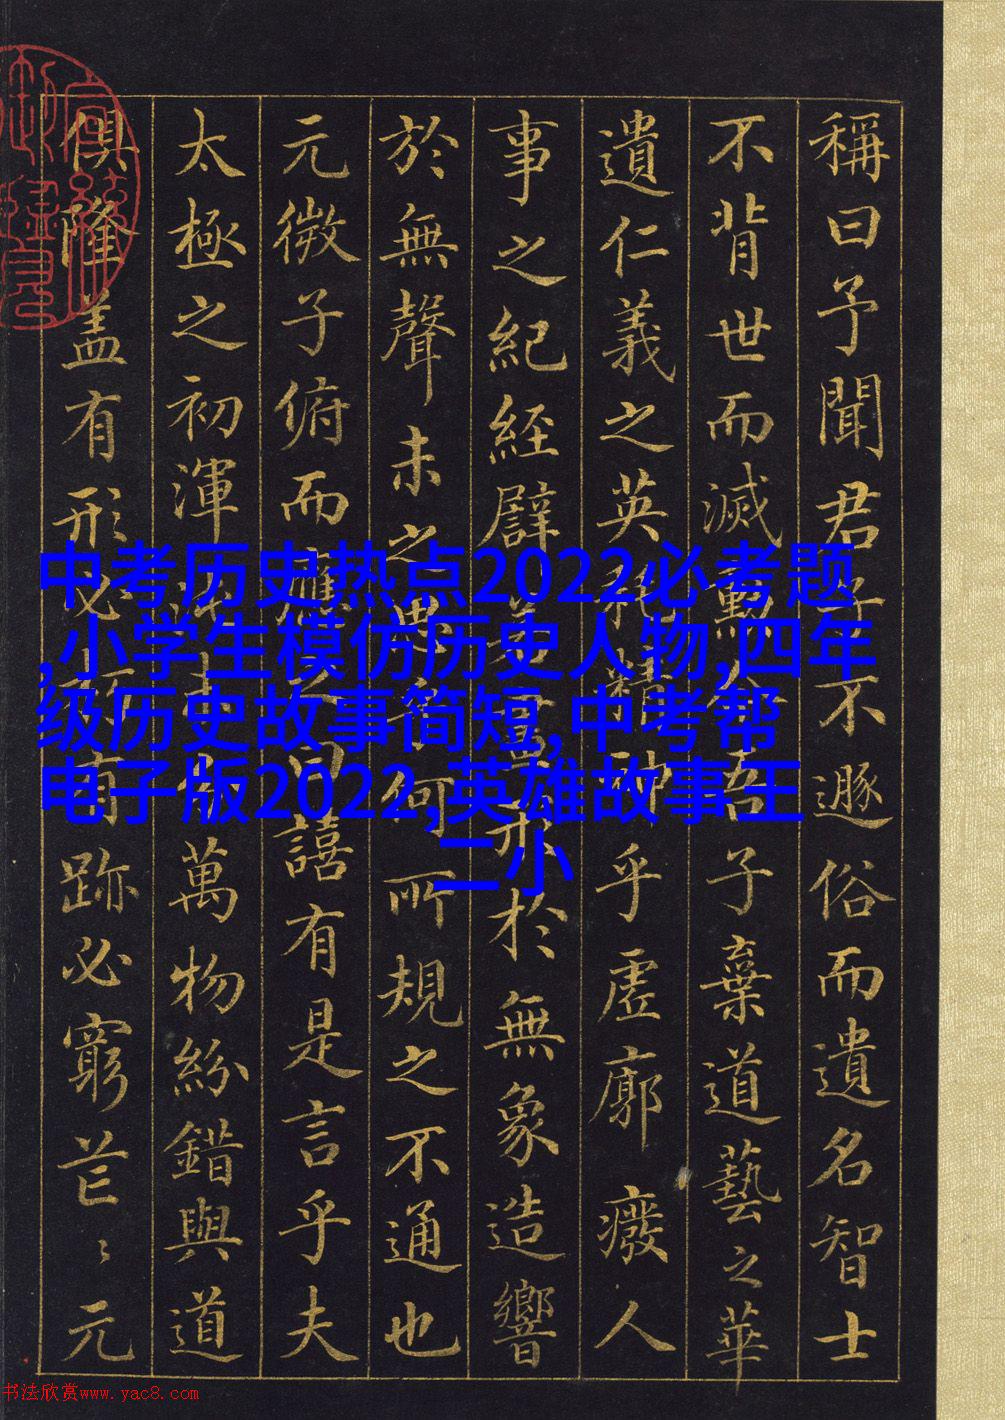 稱曰予聞君子不遯俗而遺名智士
不背世而滅勳今吾子棄道藝之華
遺仁義之英耗精神乎虛廓癈人
事之紀經譬若畫形於無象造響
於無聲未之思乎何所規之不通也
元微子俯而應之曰譆有是言乎夫
太極之初渾沌未分萬物紛錯與道
俱隆盖有形必朽有跡必窮芒〻元
中考历史热点2022必考题
,小学生模仿历史人物,四年
级历史故事简短,中考帮
电子版2022,英雄故事王
二小
书法欣赏www.yac8.com